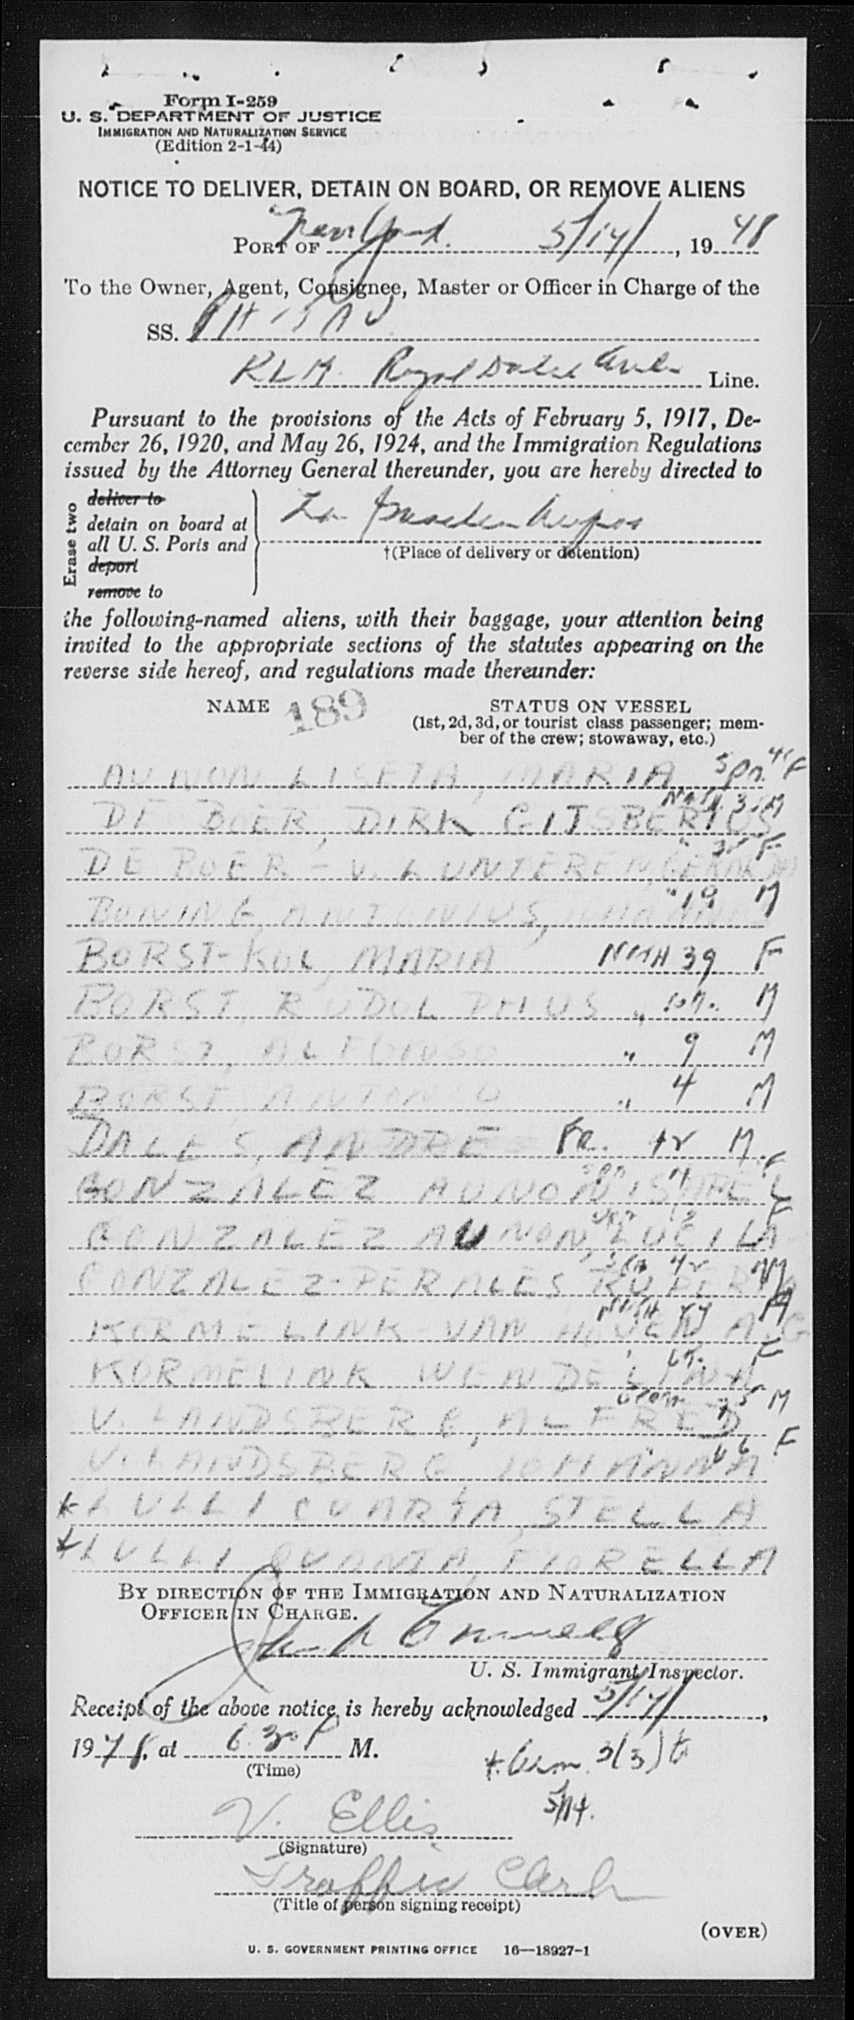 Form I-259
U. S. DEPARTMENT OF JUSTICE
IMMIGRATION AND NATURALIZATION SERVICE
(Edition 2-1-44)
NOTICE TO DELIVER, DETAIN ON BOARD, OR REMOVE ALIENS
PORT OF New York 5/14/, 1948
To the Owner, Agent, Consignee, Master or Officer in Charge of the
SS. PH-
KLM Royal Dutch Line.
Pursuant to the provisions of the Acts of February 5, 1917, De-
cember 26, 1920, and May 26, 1924, and the Immigration Regulations
issued by the Attorney General thereunder, you are hereby directed to
Erase two
deliver to
detain on board at
all U. S. Ports and
deport
remove to
†(Place of delivery or detention)
the following-named aliens, with their baggage, your attention being
invited to the appropriate sections of the statutes appearing on the
reverse side hereof, and regulations made thereunder:
NAME 189 STATUS ON VESSEL
(1st, 2d, 3d, or tourist class passenger; mem-
ber of the crew; stowaway, etc.)
AUNON LISETA, MARIA Spn. 41 F
DE BOER, DIRK GIJSBERTUS M
DE BOER - V. LUNTEREN, F
BONING, ANTONIUS, " 19 M
BORST-KOL, MARIA NETH 39 F
BORST, RUDOLPHUS " M
BORST, ALFONSO " 9 M
BORST, ANTONIO " 4 M
DALES, ANDRE Fr. M.
GONZALEZ AUNON ISABEL F
GONZALEZ AUNON LUCILA F
GONZALEZ-PERALES M
KORMELINK-VAN
KORMELINK WENDELINA F
V. LANDSBERG, ALFRED M
V. LANDSBERG JOHANNA F
LULLI QUARTA, STELLA
LULLI QUARTA, FIORELLA
BY DIRECTION OF THE IMMIGRATION AND NATURALIZATION
OFFICER IN CHARGE.
U. S. Immigrant Inspector.
Receipt of the above notice is hereby acknowledged 5/14/,
1948, at 6.30 P M.
(Time)
5/14.
V. Ellis
(Signature)
Traffic Clerk
(Title of person signing receipt)
(OVER)
U. S. GOVERNMENT PRINTING OFFICE 16—18927-1